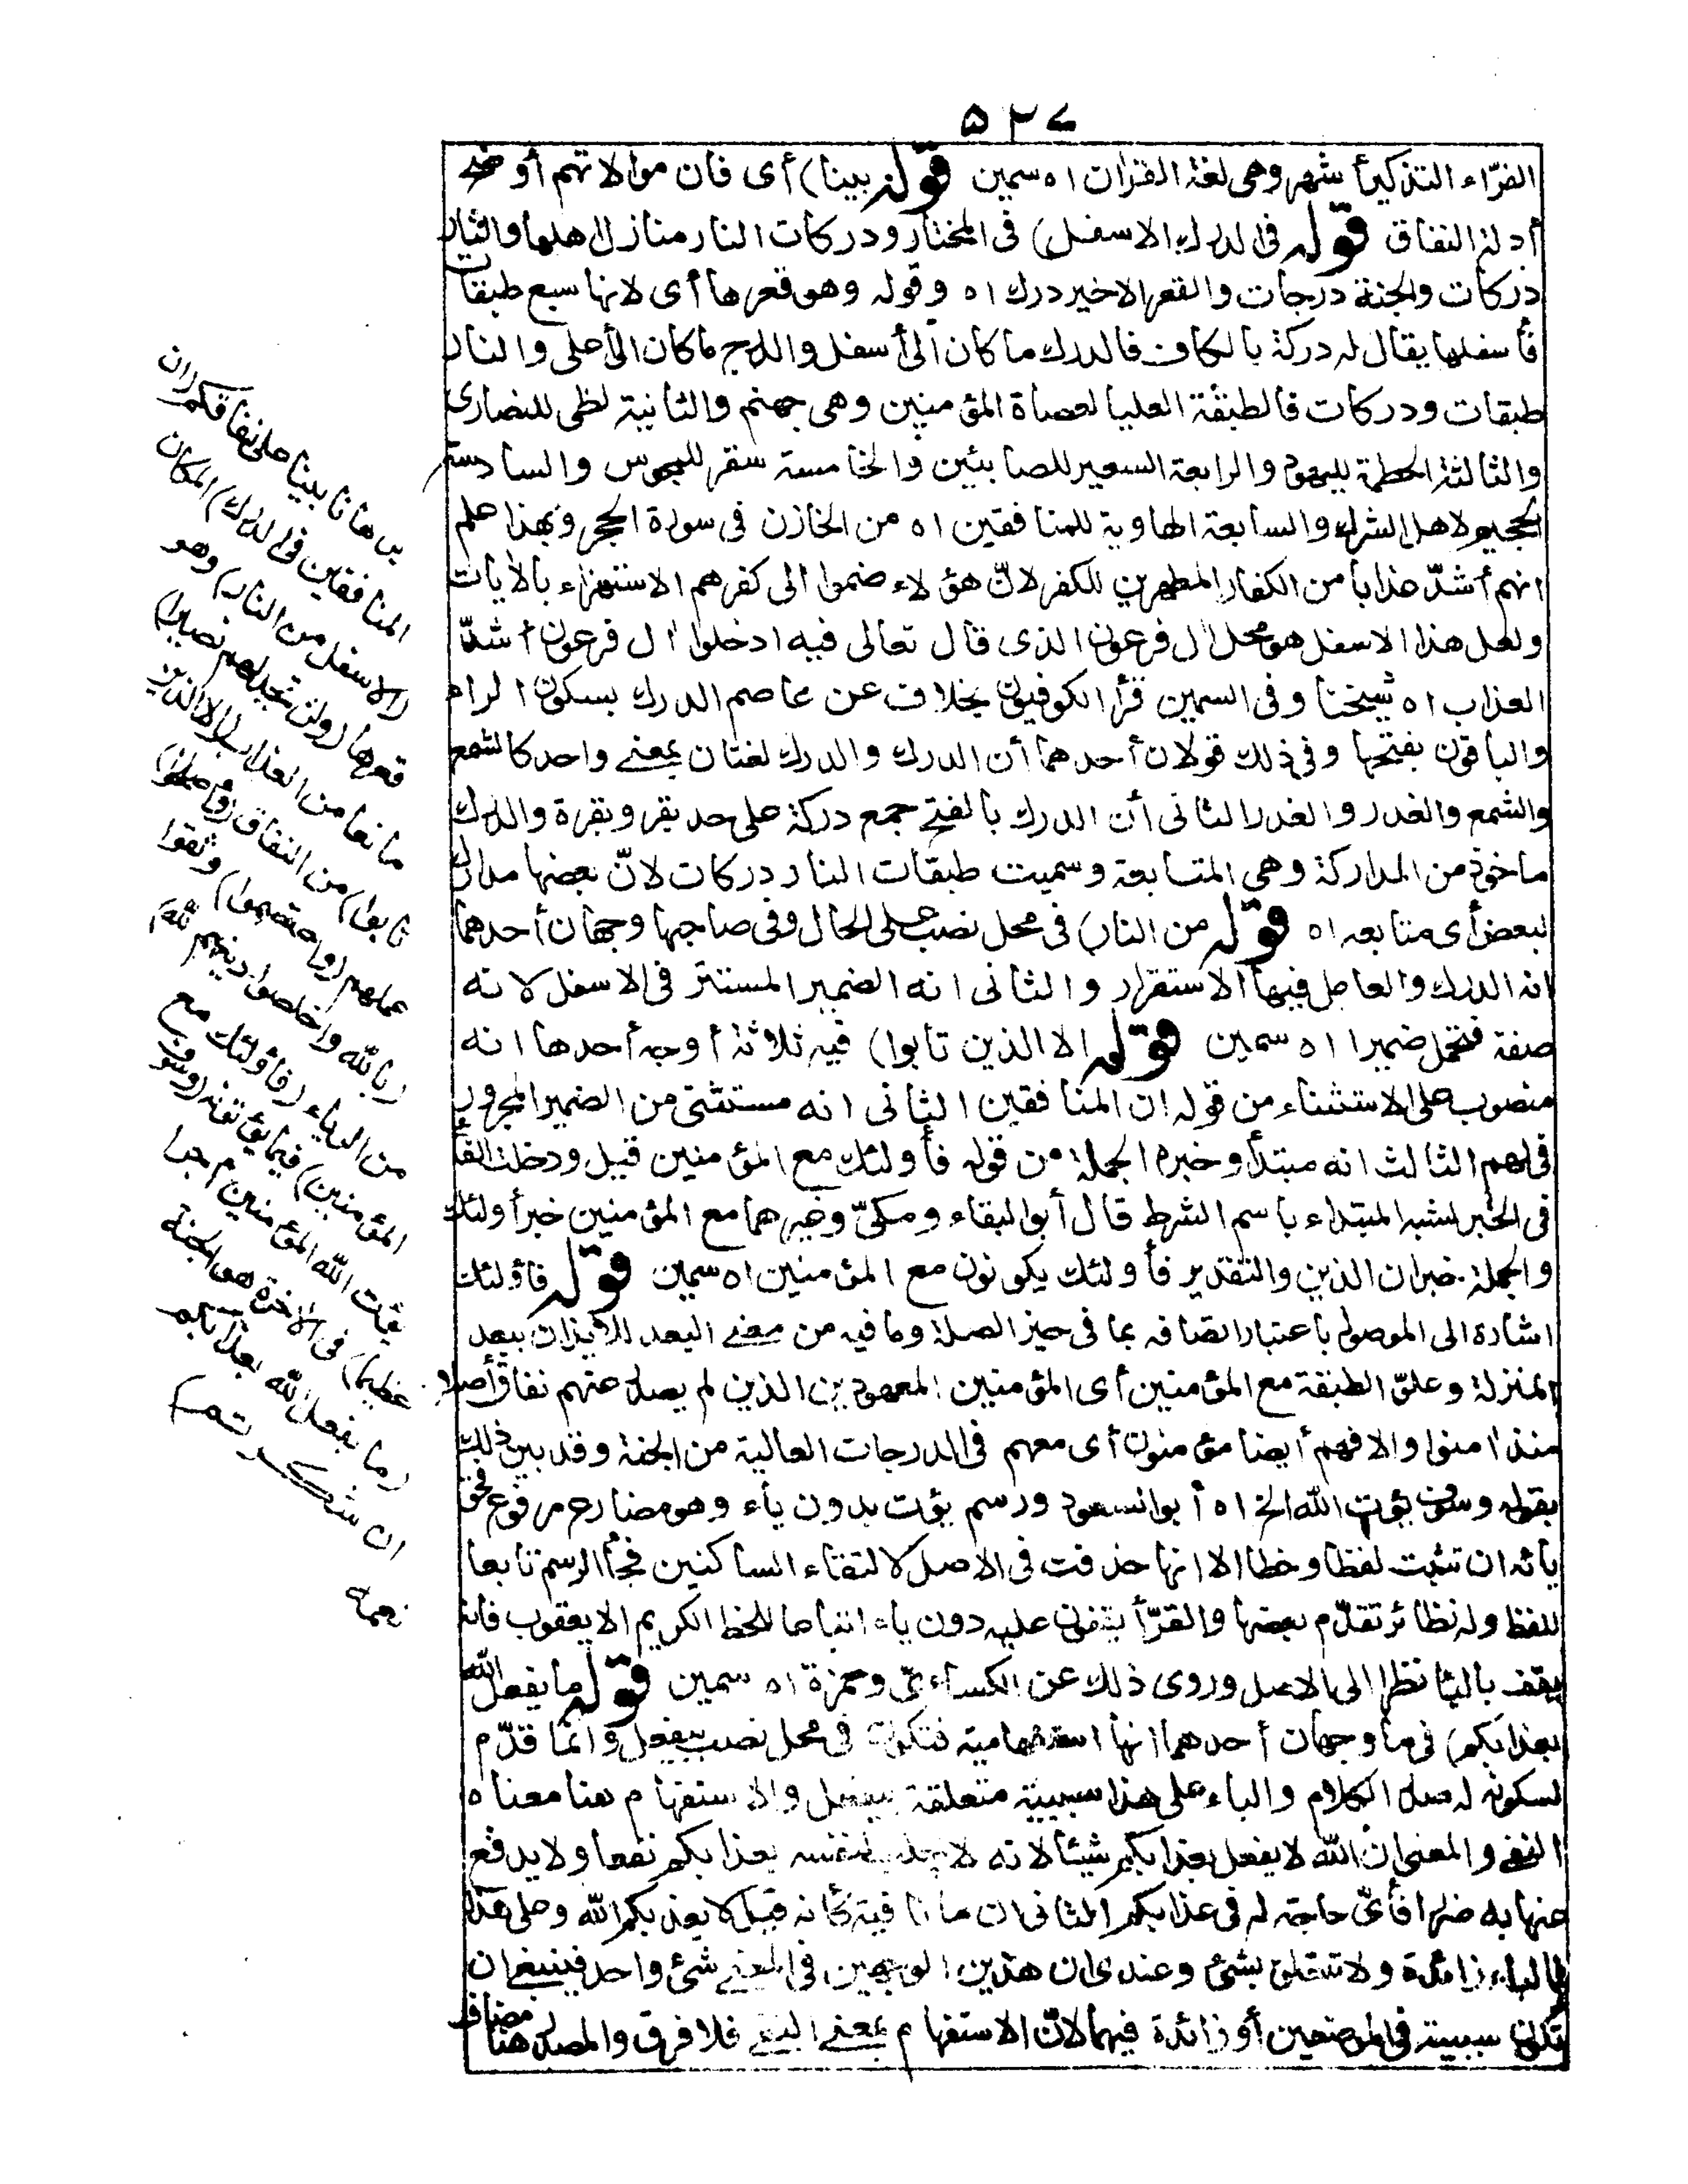 ٥٢٧
الفرّاء التذكير أشهر وهى لغة القرآن اه سمين قوله بينا) أى فان موالاتهم أوضح
أدلة النفاق قوله فى الدرك الاسفل) فى المختار ودركات النار منازل اهلها والنار
دركات والجنة درجات والقعر الاخير درك اه وقوله وهو قعرها أى لانها سبع طبقات
فأسفلها يقال له دركة بالكاف فالدرك ما كان الى أسفل والدرج ما كان الى أعلى والنار
طبقات ودركات فالطبقة العليا لعصاة المؤمنين وهى جهنم والثانية لظى للنصارى
والثالثة الحطمة لليهود والرابعة السعير للصابئين والخامسة سقر للمجوس والسادسة
الجحيم لاهل الشرك والسابعة الهاوية للمنافقين اه من الخازن فى سورة الحجر وبهذا علم
انهم أشدّ عذابا من الكفار المظهرين للكفر لانّ هؤلاء ضموا الى كفرهم الاستهزاء بالآيات
ولعل هذا الاسفل هو محل آل فرعون الذى قال تعالى فيه ادخلوا آل فرعون أشدّ
العذاب اه شيخنا وفى السمين قرأ الكوفيون بخلاف عن عاصم الدرك بسكون الراء
والباقون بفتحها وفى ذلك قولان أحدهما أن الدرك والدرك لغتان بمعنى واحد كالشمع
والشمع والغدر والغدر الثانى أن الدرك بالفتح جمع دركة على حد بقر وبقرة والدرك
ماخوذ من المداركة وهى المتابعة وسميت طبقات النار دركات لانّ بعضها مدارك
لبعض أى متابعه اه قوله من النار) فى محل نصب على الحال وفى صاحبها وجهان أحدهما
انه الدرك والعامل فيها الاستقرار والثانى انه الضمير المستتر فى الاسفل لانه
صفة فتحمل ضميرا اه سمين قوله الا الذين تابوا) فيه ثلاثة أوجه أحدها انه
منصوب على الاستثناء من قوله ان المنافقين الثانى انه مستثنى من الضمير المجرور
فى لهم الثالث انه مبتدأ وخبره الجملة من قوله فأولئك مع المؤمنين قيل ودخلت الفاء
فى الخبر لشبه المبتداء باسم الشرط قال أبو البقاء ومكىّ وغيرهما مع المؤمنين خبر أولئك
والجملة خبر ان الذين والتقدير فأولئك يكونون مع المؤمنين اه سمين قوله فأولئك
اشارة الى الموصول باعتبار اتصافه بما فى حيز الصلة وما فيه من معنى البعد للايذان ببعد
المنزلة وعلوّ الطبقة مع المؤمنين أى المؤمنين المعهودين الذين لم يصدر عنهم نفاق أصلا
منذ امنوا والا فهم أيضا مؤمنون أى معهم فى الدرجات العالية من الجنة وقد بين ذلك
بقوله وسوف يؤت الله الخ اه أبو السعود ورسم يؤت بدون ياء وهو مضارع مرفوع فحق
يائه ان تثبت لفظا وخطا الا انها حذفت فى الاصل لالتقاء الساكنين فجاأ الرسم تابعا
للفظ وله نظائر تقدّم بعضها والقرّأ يقفون عليه دون ياء اتباعا للخط الكريم الا يعقوب فانه
يقف باليا نظرا الى الاصل وروى ذلك عن الكسائىّ وحمزة اه سمين قوله ما يفعل الله
بعذابكم) فى ما وجهان أحدهما انها استفهامية فتكون فى محل نصب بيفعل وانما قدّم
لكونه له صدر الكلام والباء على هذا سببية متعلقة بيفعل والاستفهام هنا معناه
النفى والمعنى ان الله لا يفعل بعذابكم شيئا لانه لا يجلب لنفسه بعذابكم نفعا ولا يدفع
عنها به ضرا فأىّ حاجة له فى عذابكم الثانى ان ما نافية كأنه قيل لا يعذبكم الله وعلى هذا
فالباء زائدة ولا تتعلق بشئ وعندى ان هذين الوجهين فى المعنى شئ واحد فينبغى ان
تكون سببية فى الموضعين أو زائدة فيهما لانّ الاستفهام بمعنى النفى فلا فرق والمصدر هنا مضاف
برهانا بينا على نفاقكم (ان
المنافقين فى الدرك) المكان
(الاسفل من النار) وهو
قعرها (ولن تجد لهم نصيرا)
مانعا من العذاب (الا الذين
تابوا) من النفاق (وأصلحوا)
عملهم (واعتصموا) وثقوا
(بالله وأخلصوا دينهم لله)
من الرياء (فأولئك مع
المؤمنين) فيما يؤتونه (وسوف
يؤت الله المؤمنين أجرا
عظيما) فى الاخرة هو الجنة
(ما يفعل الله بعذابكم
ان شكرتم)
نعمه